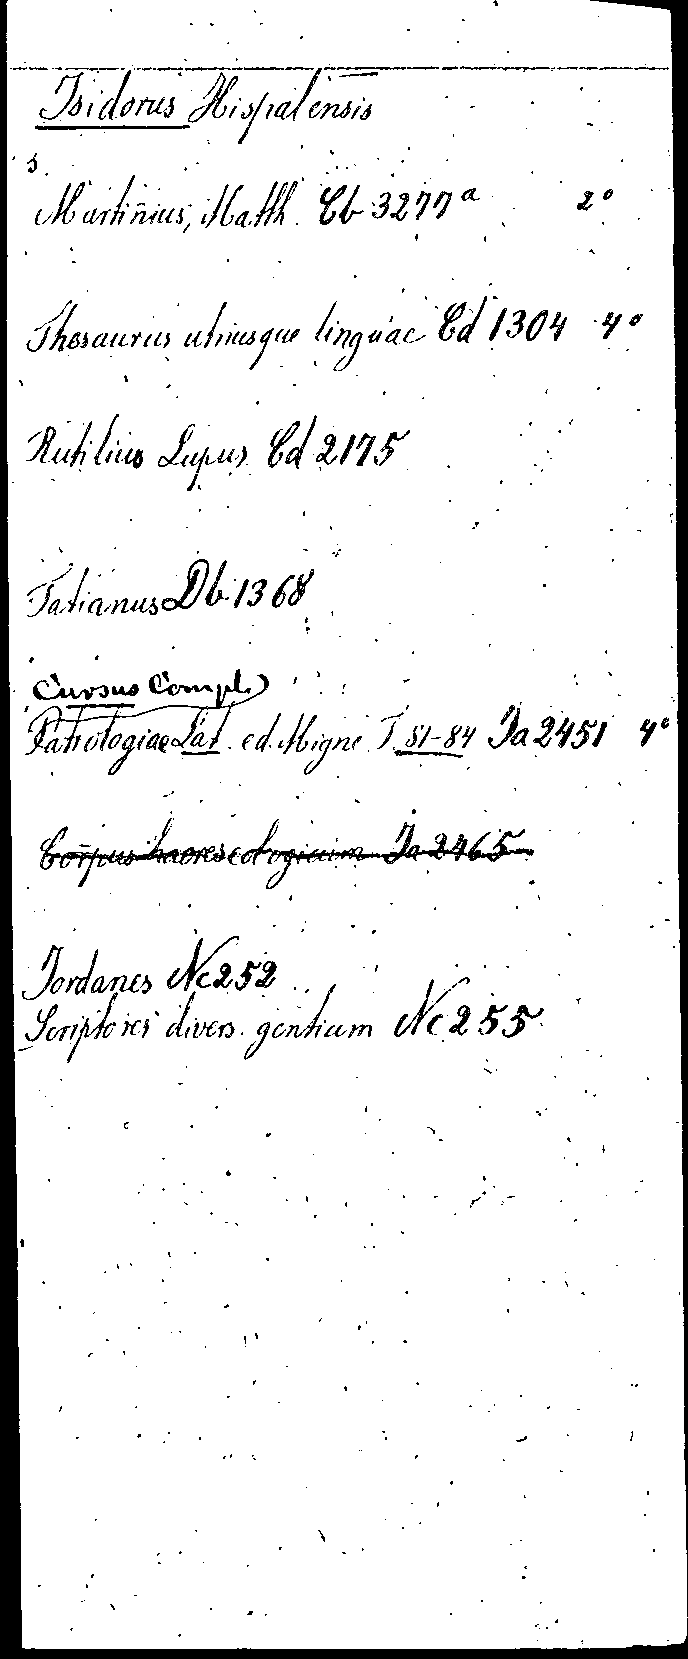 Isidorus Hispalensis
s.
Martinius, Matth. Cb 3277ª 2º
Thesaurus utriusque linguae Cd 1304 4º
Rutilius Lupus Cd 2175
Tatianus Db 1368
Cursus Compl.
Patrologiae Lat. ed. Migne T. 81-84 Ja 2451 4º
Corpus haereseologicum Ja 2465
Jordanes Nc 252
Scriptores divers. gentium Nc 255